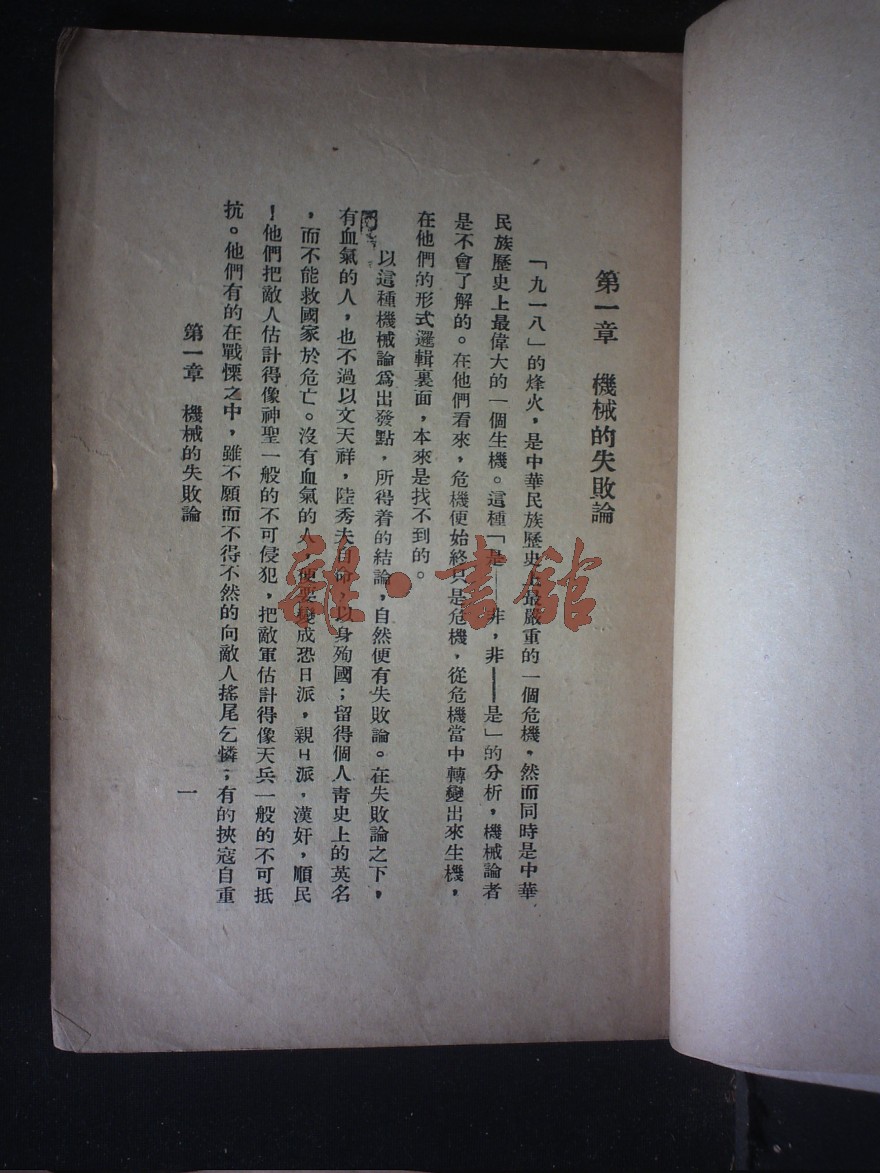 第一章　機械的失敗論
「九一八」的烽火，是中華民族歷史上最嚴重的一個危機，然而同時是中華
民族歷史上最偉大的一個生機。這種「是——非，非——是」的分析，機械論者
是不會了解的。在他們看來，危機便始終只是危機，從危機當中轉變出來生機，
在他們的形式邏輯裏面，本來是找不到的。
以這種機械論爲出發點，所得着的結論，自然便有失敗論。在失敗論之下，
有血氣的人，也不過以文天祥，陸秀夫自命，以身殉國；留得個人靑史上的英名
，而不能救國家於危亡。沒有血氣的人，便要變成恐日派，親日派，漢奸，順民
！他們把敵人估計得像神聖一般的不可侵犯，把敵軍估計得像天兵一般的不可抵
抗。他們有的在戰慄之中，雖不願而不得不然的向敵人搖尾乞憐；有的挾寇自重
第一章　機械的失敗論
一
雜·書館